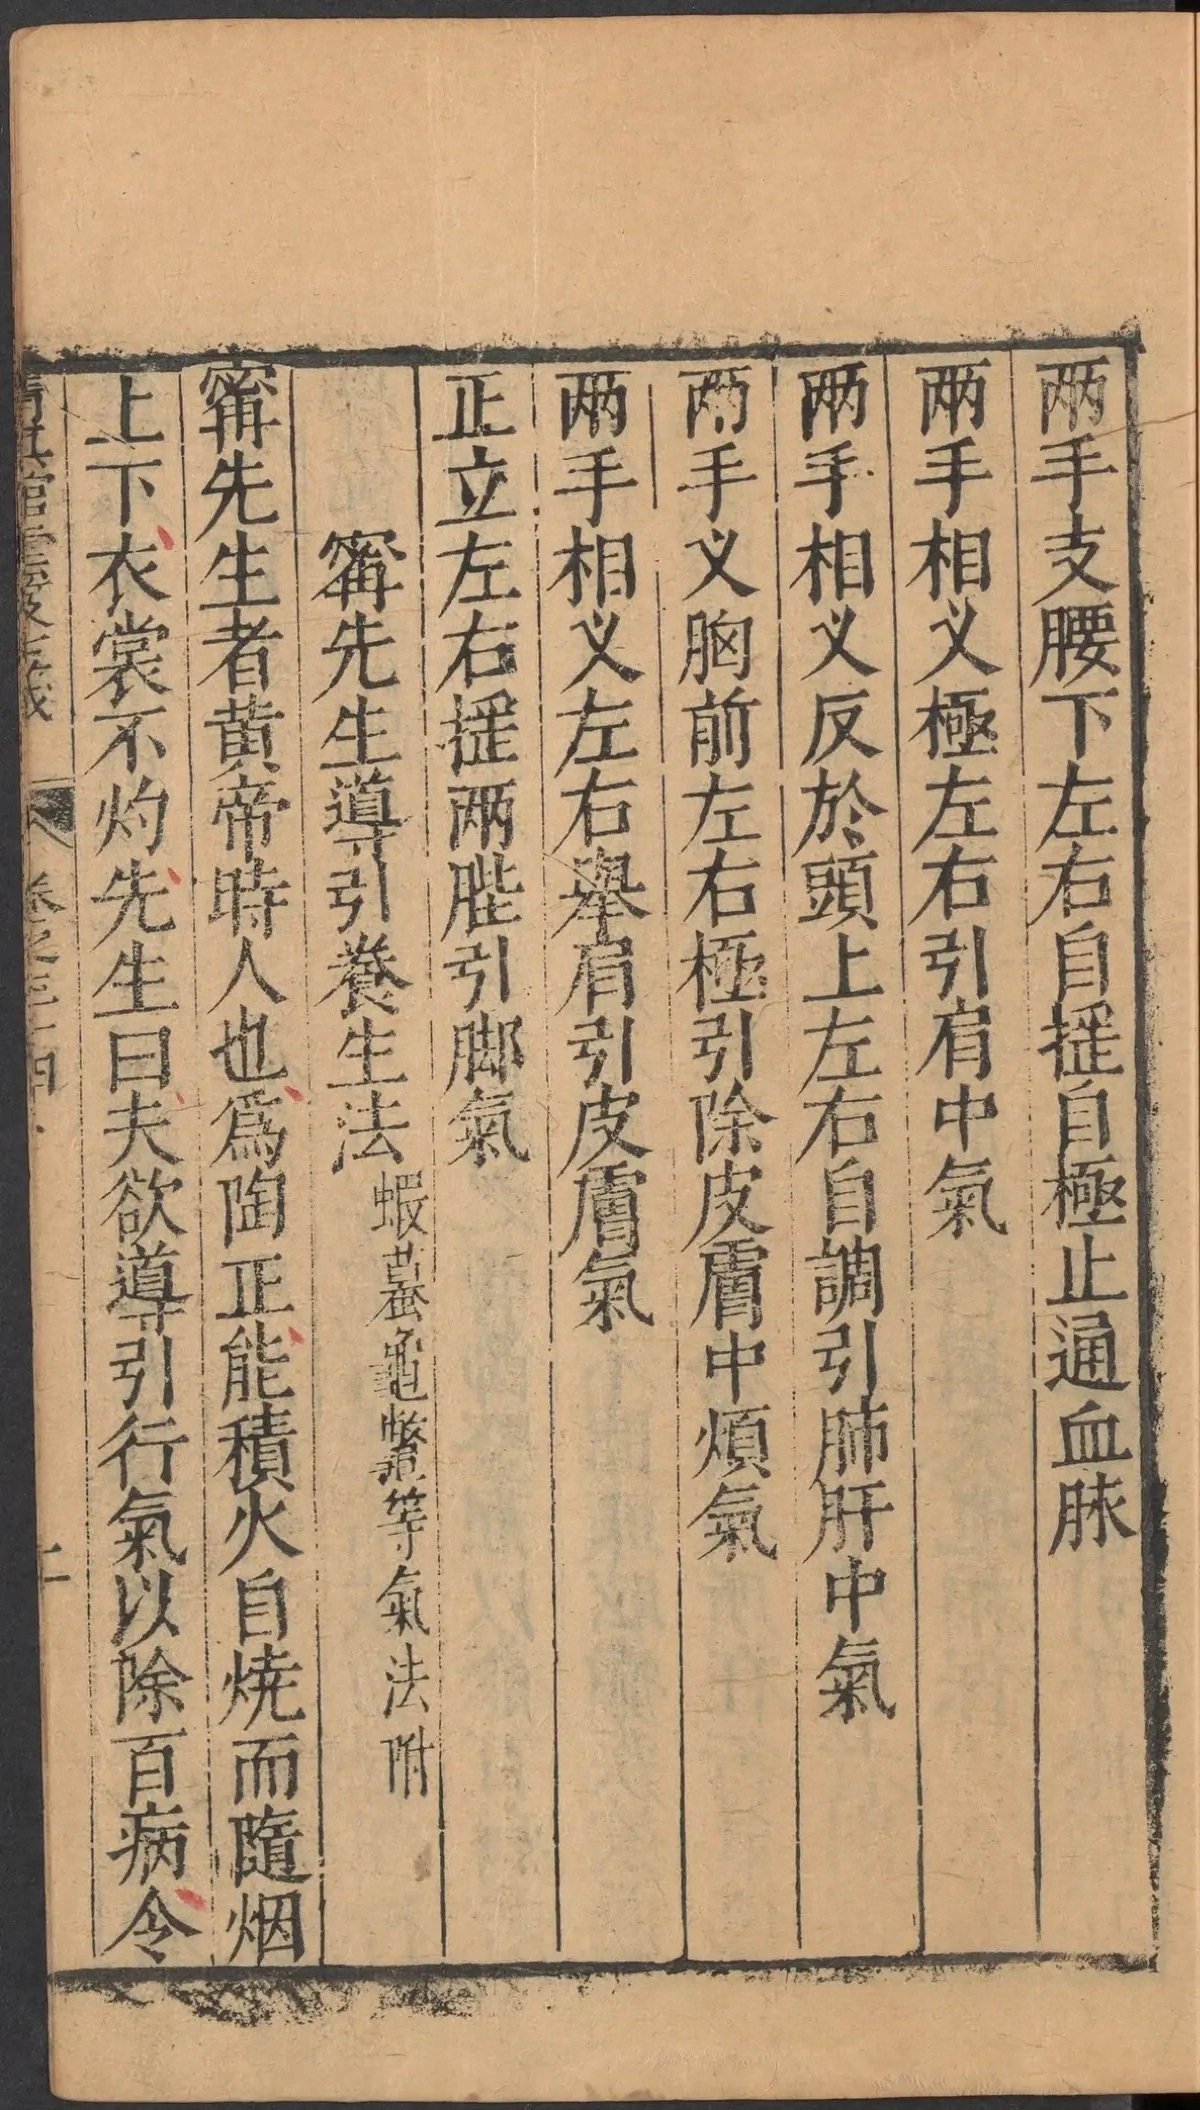 兩手支腰下左右自摇自極止通血脉
兩手相义極左右引肩中氣
兩手相义反於頭上左右自調引肺肝中氣
兩手义胸前左右極引除皮膚中煩氣
兩手相义左右舉肩引皮膚氣
正立左右摇兩䏶引脚氣
甯先生導引養生法蝦蟇龜鱉等氣法附
甯先生者黄帝時人也為陶正能積火自燒而隨烟
上下衣裳不灼先生曰夫欲導引行氣以除百病令
卷之三十四